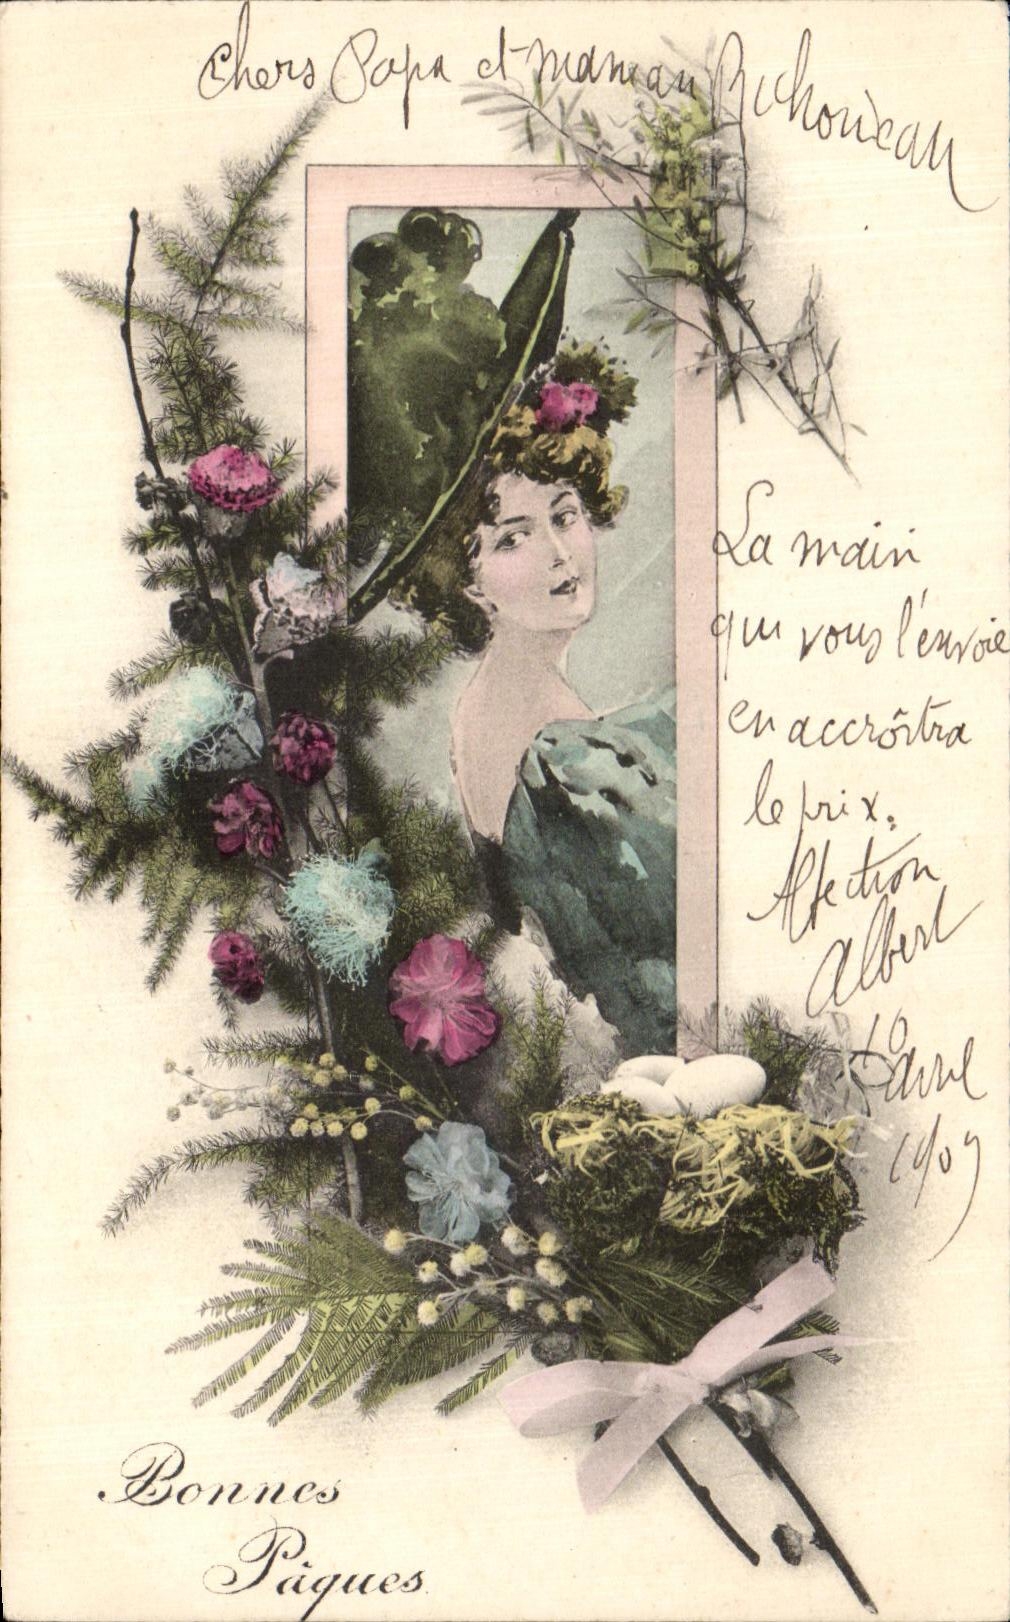 Chers Papa et maman Bichonneau
La main
qui vous l'envoie
en accrôitra
le prix.
Afection
Albert
10 avril
1909
Bonnes
Pâques